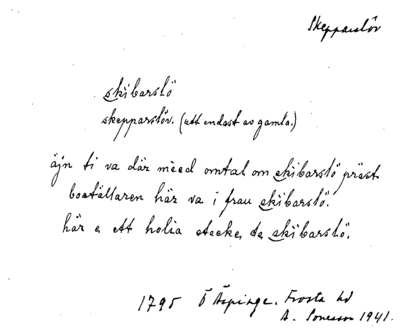 Skepparslöv
skibarslö
skepparslöv. (utt endast av gamla.)
äjn ti va där meed omtal om skibarslö präst
bostället här va i frau skibarslö.
här e ett holia stecke, de skibarslö.
1795 Ö Äspinge. Frosta hd
A. Sonesson 1941.